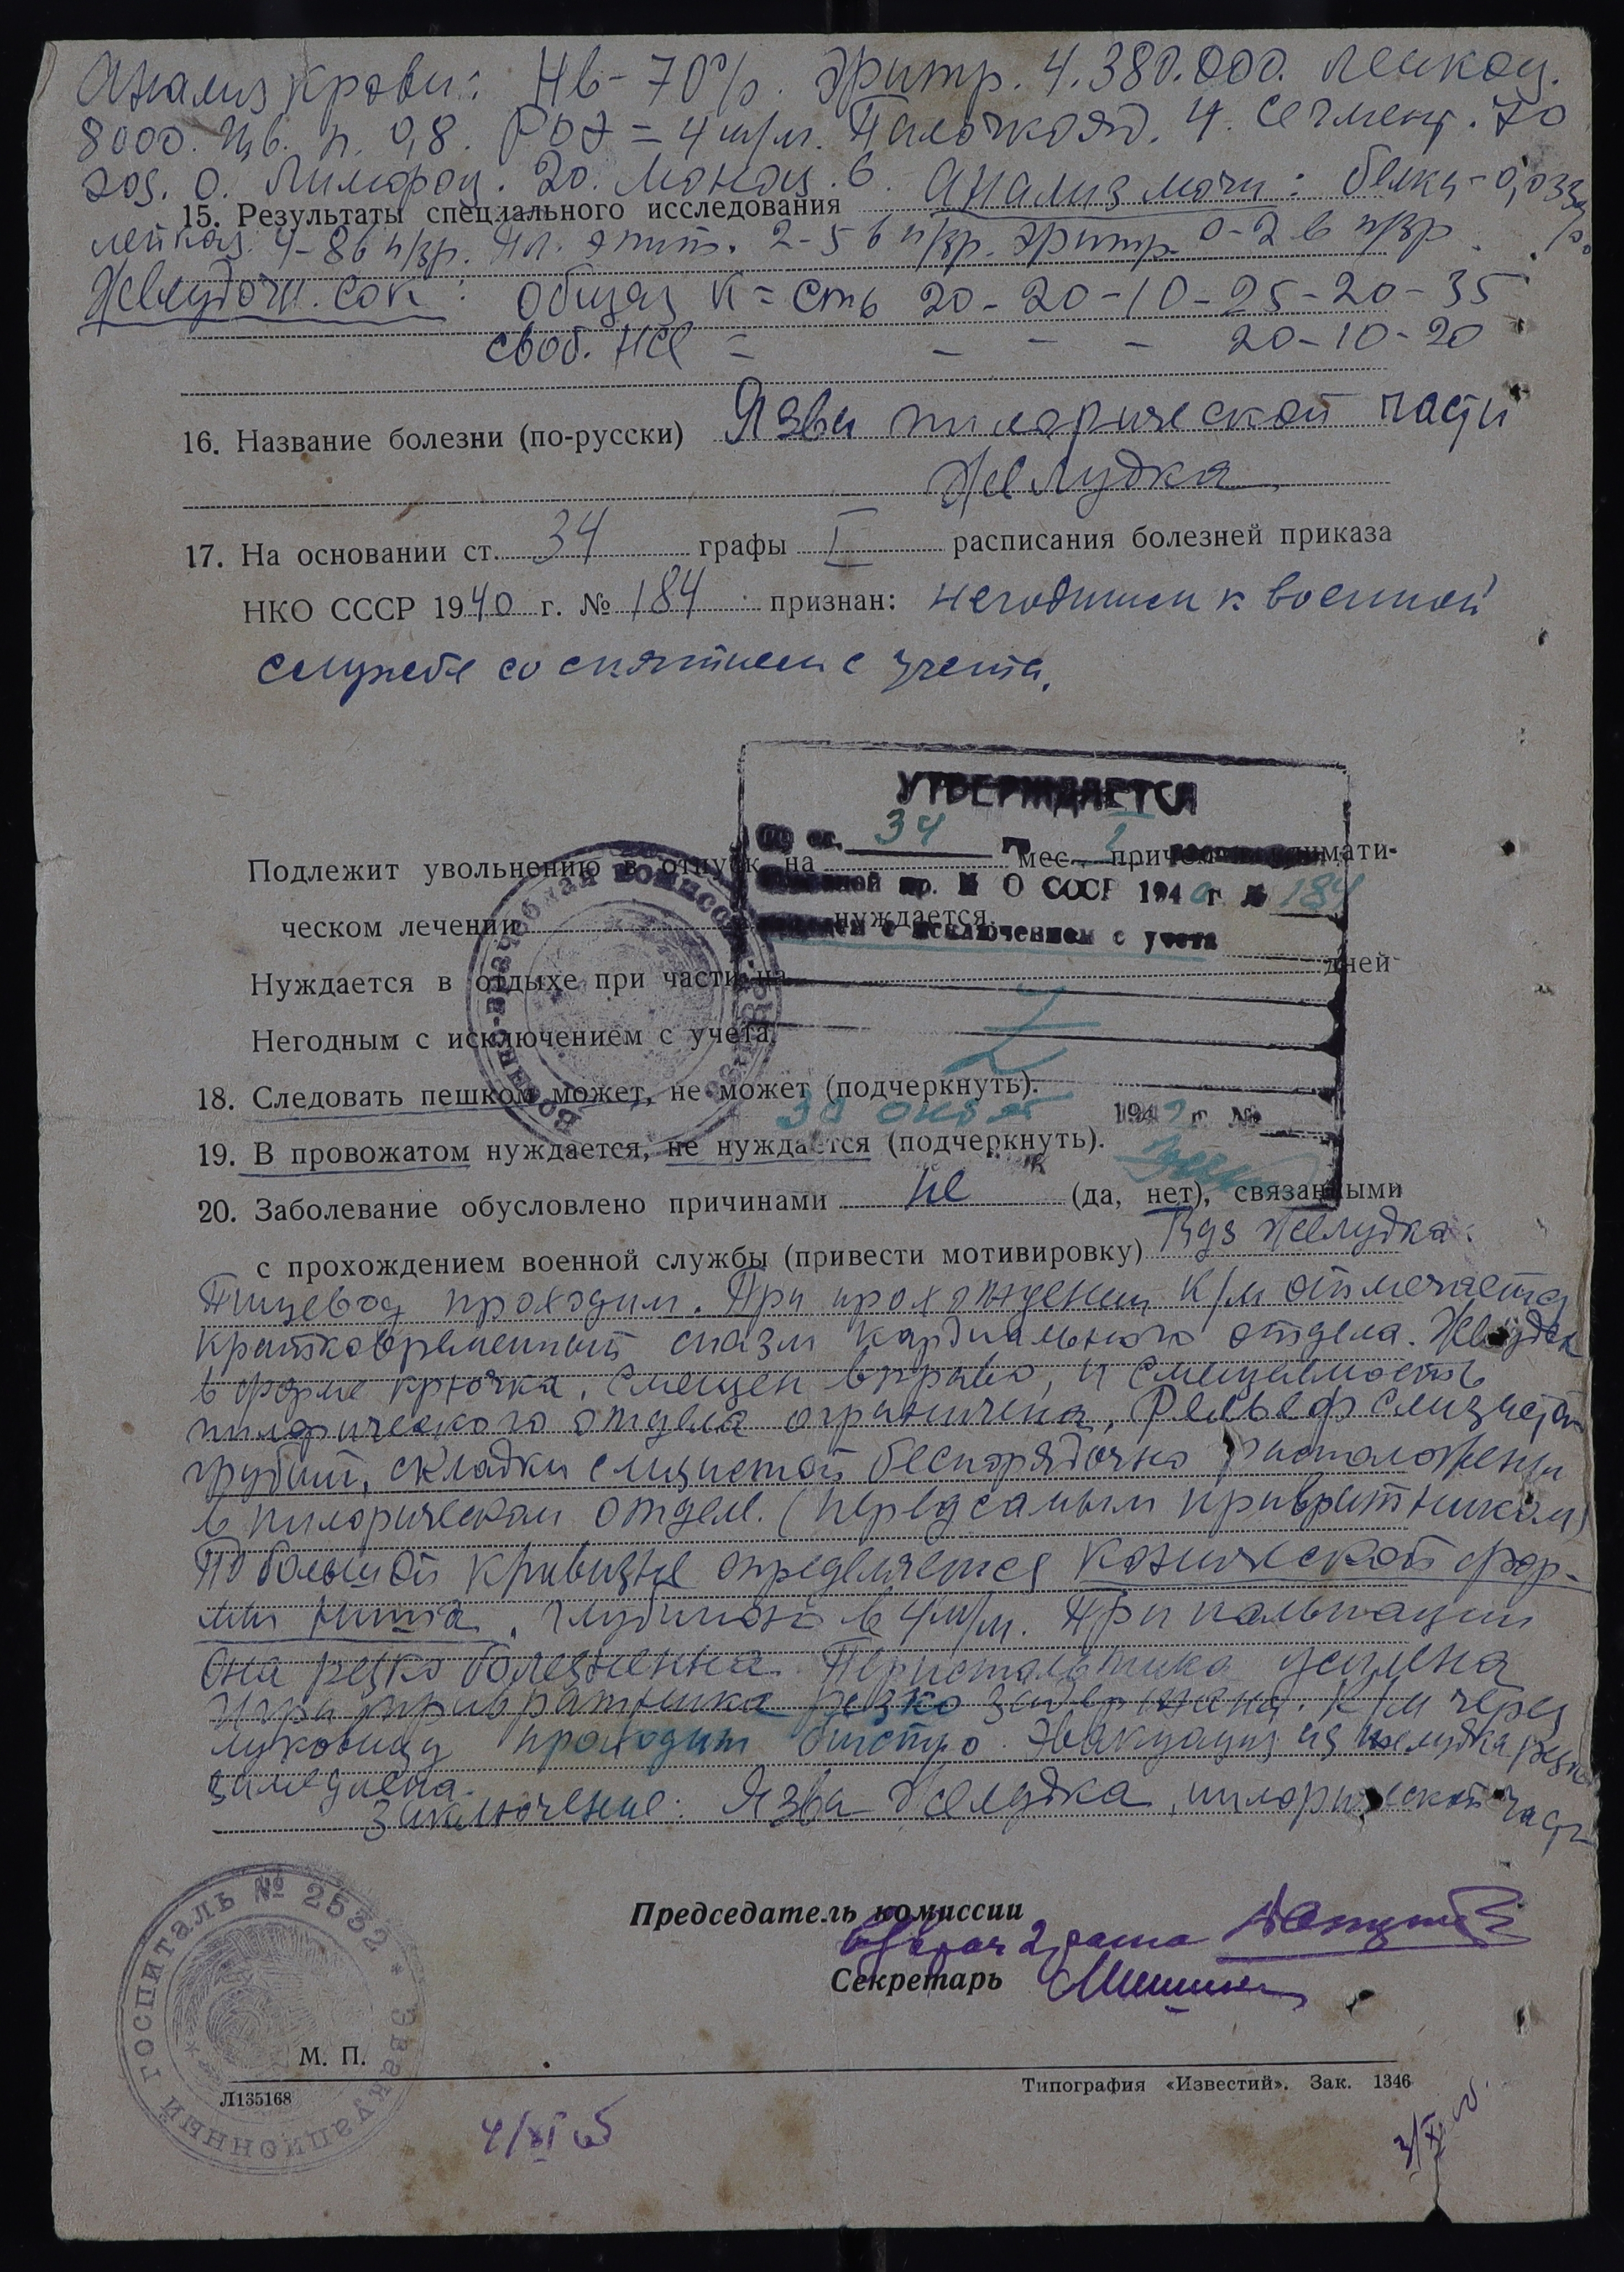 Анализ крови: Нв - 70%. Эритр. 4.380.000. Лейкоц.
8000. Цв. п. 0,8. РОЭ = 4 м/м. Палочкояд. 4. Сегмент. 70
эоз. 0. Лимфоц. 20. Моноц. 6. Анализ мочи: белка - 0,033
15. Результаты специального исследования
лейкоц. 4-8 в п/зр. Пл. эпит. 2-5 в п/зр. Эритр. 0-2 в п/зр.
Желудочн. сок: Общая к=сть 20-20-10-25-20-35
своб. HCl = - - - 20-10-20
16. Название болезни (по-русски) Язва пилорической части
желудка
17. На основании ст. 34 графы I расписания болезней приказа
НКО СССР 1940 г. № 184 признан: негодным к военной
службе со снятием с учета.
УТВЕРЖДАЕТСЯ
34
Подлежит увольнению в отпуск на мес., причем климати-
О СССР 1940 г № 184
ческом лечении нуждается.
с исключением с учета
Нуждается в отдыхе при части на дней
Негодным с исключением с учета.
18. Следовать пешком может, не может (подчеркнуть).
30 194 г. №
19. В провожатом нуждается, не нуждается (подчеркнуть).
20. Заболевание обусловлено причинами не (да, нет), связанными
с прохождением военной службы (привести мотивировку) желудка:
Пищевод проходим. При прохождении к/м отмечается
кратковременный спазм кардиального отдела. Желудок
в форме крючка, смещен вправо, и смещаемость
пилорического отдела ограничена. Рельеф слизистой
грубый, складки слизистой беспорядочно расположены
в пилорическом отделе. (перед самым привратником)
По большой кривизне определяется конической фор-
мы ниша, глубиной в 4 м/м. При пальпации
она резко болезненна. Перистальтика усилена
Игра привратника резко задержана. К/м через
луковицу проходит быстро. Эвакуация из желудка резко
замедлена.
Заключение: Язва желудка, пилорической части
Председатель комиссии
врач 2 ранга
Секретарь
ЭВАКУАЦИОННЫЙ ГОСПИТАЛЬ № 2532
М. П.
Л135168
Типография «Известий». Зак. 1346
4/XI
3/XI